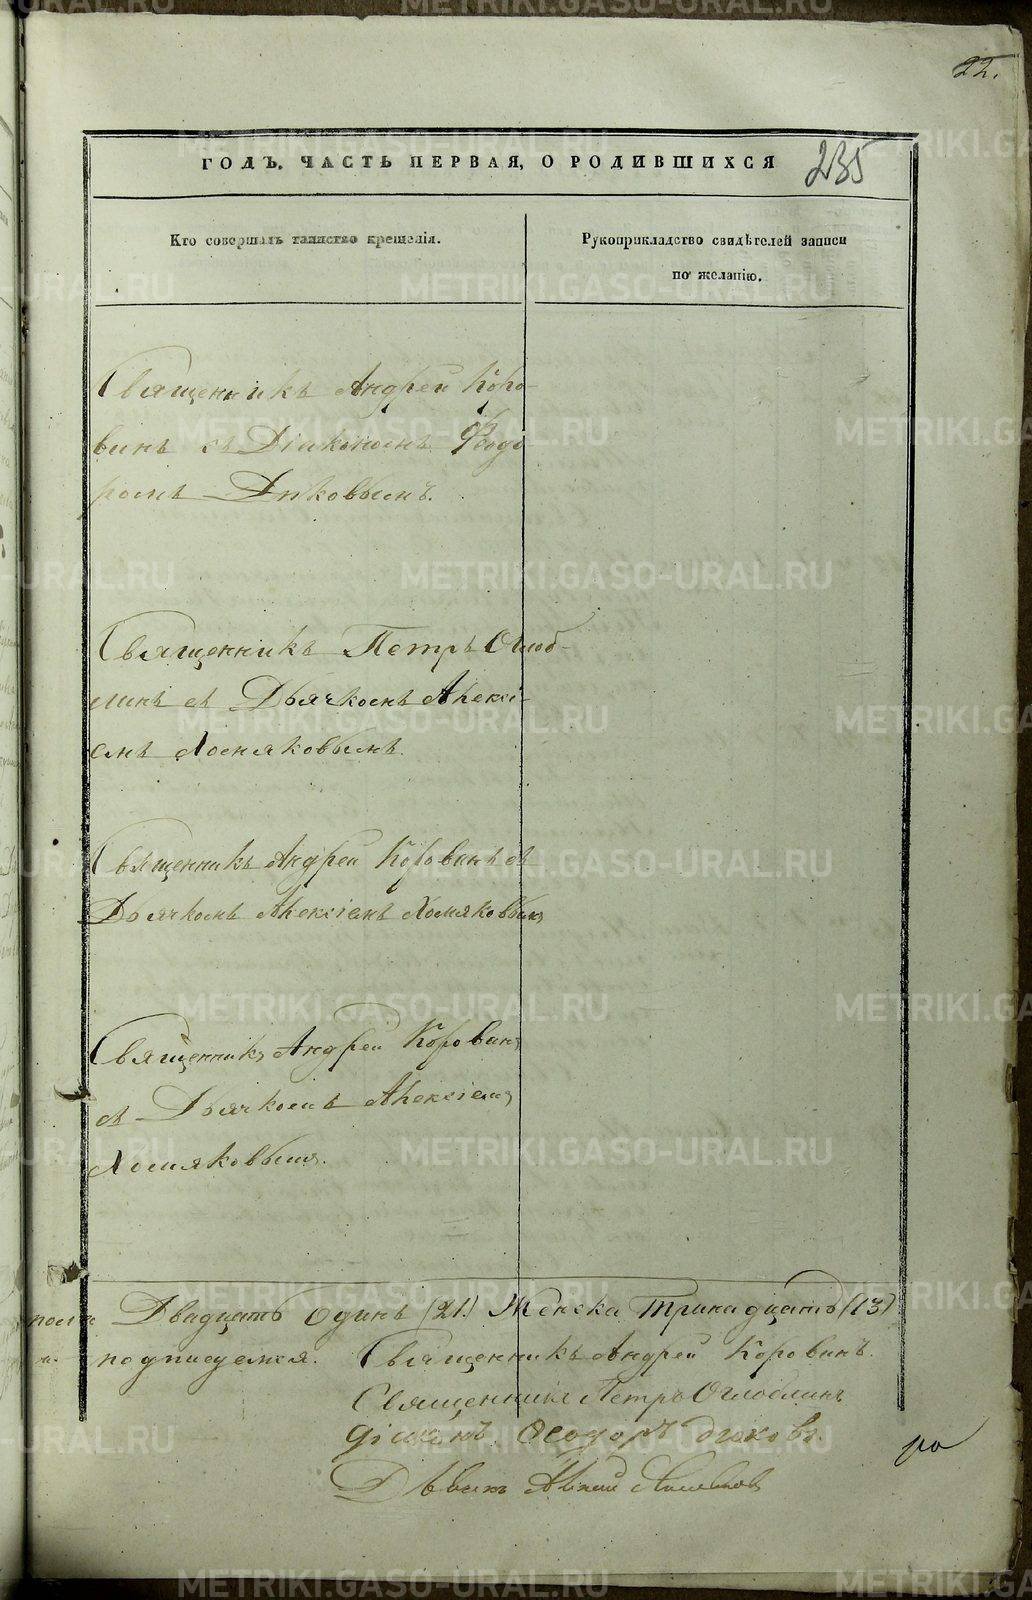 22.
ГОДЪ. ЧАСТЬ ПЕРВАЯ, О РОДИВШИХСЯ
235
Кто совершалъ таинство крещенія.
Рукоприкладство свидѣтелей записи
по желанію.
Священникъ Андрей Коро-
винъ съ Діакономъ Ѳеодо
ромъ
Священникъ Петръ Оглоб-
линъ съ Дьячкомъ Алексі-
емъ Хомяковымъ.
Священникъ Андрей Коровинъ съ
Дьячкомъ Алексіемъ Хомяковымъ
Священникъ Андрей Коровинъ
съ Дьячкомъ Алексіемъ
Хомяковымъ.
Двадцать Одинъ (21.) Женска Тринадцать (13)
подписуемся. Священникъ Андрей Коровинъ.
Священникъ Петръ Оглоблинъ
Діаконъ Ѳеодоръ
METRIKI.GASO-URAL.RU